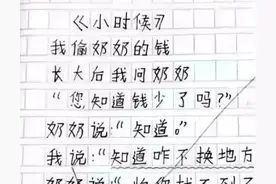 《小时候》
我偷奶奶的钱
长大后我问奶奶
“您知道钱少了吗？”
奶奶说：“知道。”
我说：“知道咋不换地方
奶奶说：“怕您找不到了